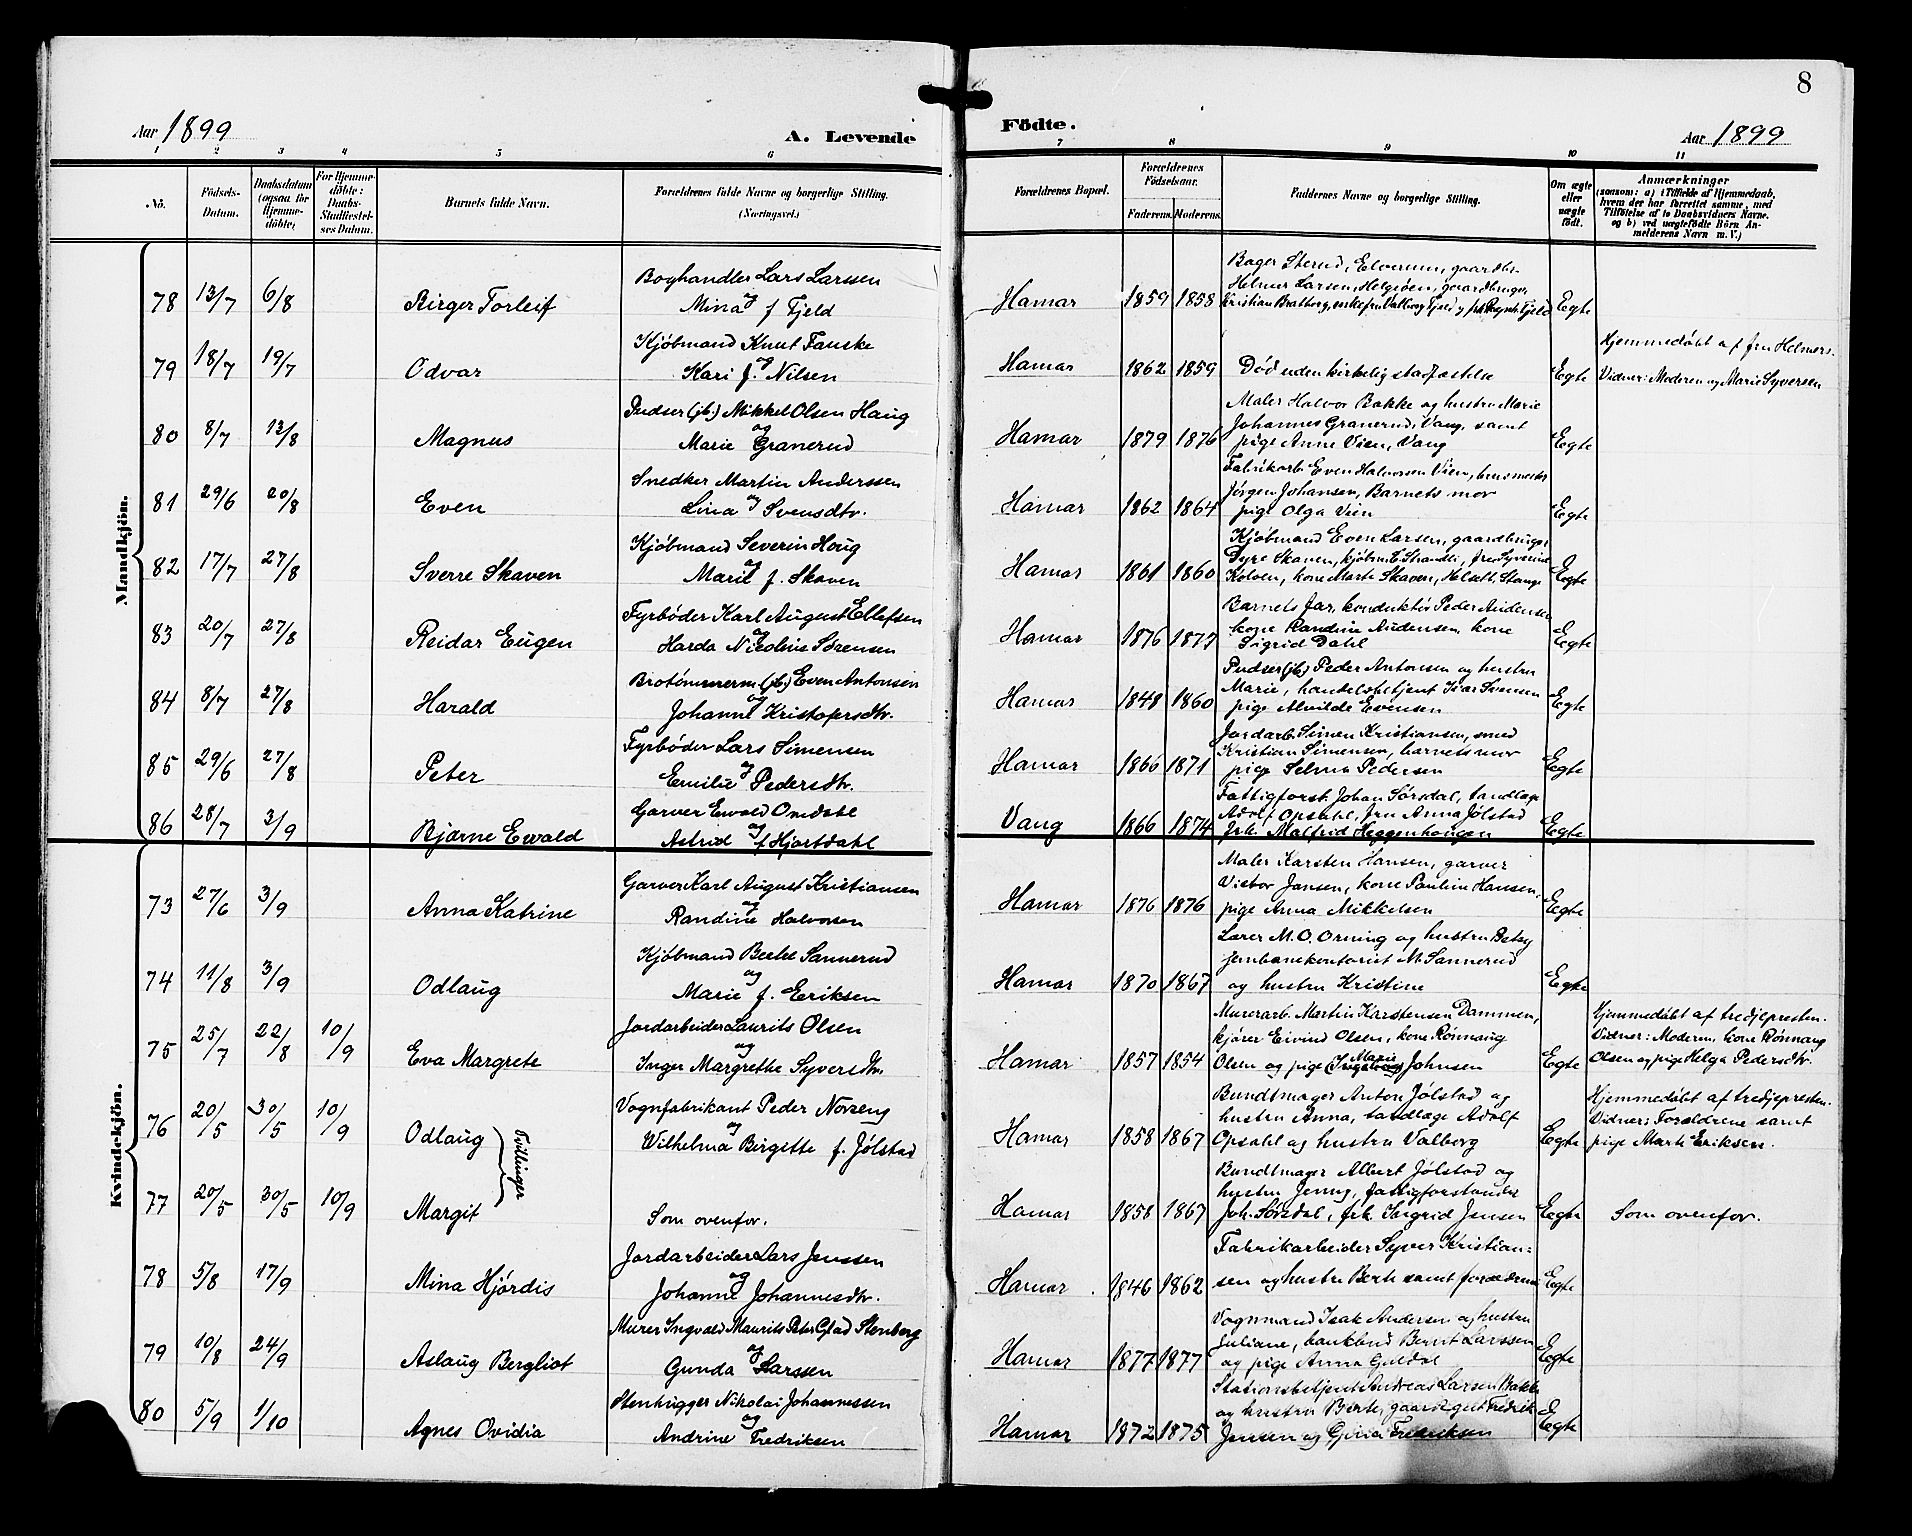 8
Aar 1899
A. Levende
Födte.
Aar 1899
1 2 3 4 5 6 7 8 9 10 11
No.
Födsels-Datum.
Daabsdatum (ogsaa for Hjemme-döbte)
For Hjemme-döbte: Daabs-Stadfæstel-ses Datum.
Barnets fulde Navn.
Forældrenes fulde Navne og borgerlige Stilling.
(Næringsvei.)
Forældrenes Bopæl.
Forældrenes Födselsaar.
Faderens. Moderens.
Faddernes Navne og borgerlige Stilling.
Om ægte eller uægte födt.
Anmærkninger
(saasom: a) i Tilfælde af Hjemmedaab, hvem der har forrettet samme, med Tilföielse af to Daabsvidners Navne. og b) ved uægtefödte Börn An-melderens Navn m. V.)
Mandkjön.
78 13/7 6/8 Birger Torleif
Boghandler Lars Larssen
og
Mina f Fjeld
Hamar 1859 1858
Bager Sterud, Elverum, gaardbr.
Helmer Larsen, Helgøen, gaardbruger
Kristian Bratberg, enkefru Valborg Fjeld og frk Ragnh. Fjeld
Egte
79 18/7 19/7 Odvar
Kjøbmand Knut Fauske
og
Kari f. Nilsen
Hamar 1862 1859
Død uden kirkelig stadfæstelse
Egte
Hjemmedøbt af fru Helmers.
Vidner: Moderen og Marie Syversen
80 8/7 13/8 Magnus
Pudser (jb.) Mikkel Olsen Haug
og
Marie Granerud
Hamar 1879 1876
Maler Halvor Bakke og hustru Marie
Johannes Granerud, Vang, samt
pige Anne Vien, Vang
Egte
81 29/6 20/8 Even
Snedker Martin Anderssen
og
Lina Svensdtr.
Hamar 1862 1864
Fabrikarb. Even Halvorsen Vien, brusmester
Jørgen Johansen, Barnets mor
pige Olga Vien
Egte
82 17/7 27/8 Sverre Skaven
Kjøbmand Severin Houg
og
Marit f. Skaven
Hamar 1861 1860
Kjøbmand Even Larsen, gaardbruger
Syre Skaven, kjøbm. E. Strandli, fru Syverine
Kolven, kone Marte Skaven, Helsett, Stange
Egte
83 20/7 27/8 Reidar Eugen
Fyrbøder Karl August Ellefsen
og
Harda Nicoline Sørensen
Hamar 1876 1877
Barnets far, konduktør Peder Andersen
kone Randine Andersen, kone
Sigrid Dahl
Egte
84 8/7 27/8 Harald
Brotømmerm. (jb.) Even Antonsen
og
Johanne Kristofersdtr.
Hamar 1848 1860
Pudser (jb.) Peder Antonsen og hustru
Marie, handelsbetjent Ivar Svensen
pige Alvilde Evensen
Egte
85 29/6 27/8 Peter
Fyrbøder Lars Simensen
og
Emilie Pedersdtr.
Hamar 1866 1871
Jordarb. Simen Kristiansen, smed
Kristian Simensen, barnets mor
pige Selma Pedersen
Egte
86 28/7 3/9 Bjarne Ewald
Garver Ewald Omdal
og
Astrid f Hjortdahl
Vang 1866 1874
Fattigforst. Johan Sørsdal, tandlæge
Adolf Opsahl, fru Anna Jølstad
frk. Malfrid Heggenhougen
Egte
Kvindekjön.
73 27/6 3/9 Anna Katrine
Garver Karl August Kristiansen
og
Randine Halvorsen
Hamar 1876 1876
Maler Karsten Hansen, garver
Victor Jansen, kone Pauline Hansen,
pige Anna Mikkelsen
Egte
74 11/8 3/9 Odlaug
Kjøbmand Sannerud
og
Marie f. Eriksen
Hamar 1870 1867
Lærer M. O. Orning og hustru Betsy
jernbanekontorist M. Sannerud
og hustru Kristine
Egte
75 25/7 22/8 10/9 Eva Margrete
Jordarbeider Laurits Olsen
og
Inger Margrethe Syversdtr.
Hamar 1857 1854
Murerarb. Martin Karstensen Dammen,
kjører Eivind Olsen, kone Rønnaug
Olsen og pige (Ingeborg) Marie Johnsen
Egte
Hjemmedøbt af tredjepresten.
Vidner: Moderen, kone Rønnaug
Olsen og pige Helga Pedersdtr.
76 20/5 30/5 10/9 Odlaug
Tvillinger
Vognfabrikant Peder Norseng
og
Wilhelma Birgitte f. Jølstad
Hamar 1858 1867
Bundtmager Anton Jølstad og
hustru Anna, tandlæge Adolf
Opsahl og hustru Valborg
Egte
Hjemmedøbt af tredjepresten.
Vidner: Forældrene samt
pige Marte Eriksen.
77 20/5 30/5 10/9 Margit
Som ovenfor.
Hamar 1858 1867
Bundtmager Albert Jølstad og
hustru Jenny, fattigforstander
Joh. Sørsdal, frk. Ingrid Jensen
Egte
Som ovenfor.
78 5/8 17/9 Mina Hjørdis
Jordarbeider Lars Jenssen
og
Johanne Johannesdtr.
Hamar 1846 1862
Fabrikarbeider Syver Kristian=
sen og hustru Berte samt forældrene
Egte
79 10/8 24/9 Aslaug Bergliot
Murer Ingvald Maurits Peter Glad Stenberg
og
Gunda Larssen
Hamar 1877 1877
Vognmand Isak Andersen og hustru
Juliane, bankbud Bernt Larssen
og pige Anna Guldal
Egte
80 5/9 1/10 Agnes Ovidia
Stenhugger Nikolai Johannessen
og
Andrine Fredriksen
Hamar 1872 1875
Stationsbetjent Andreas Larsen Bakke
og hustru Berte, gaardeget Fredrik
Jensen og Gina Fredriksen
Egte